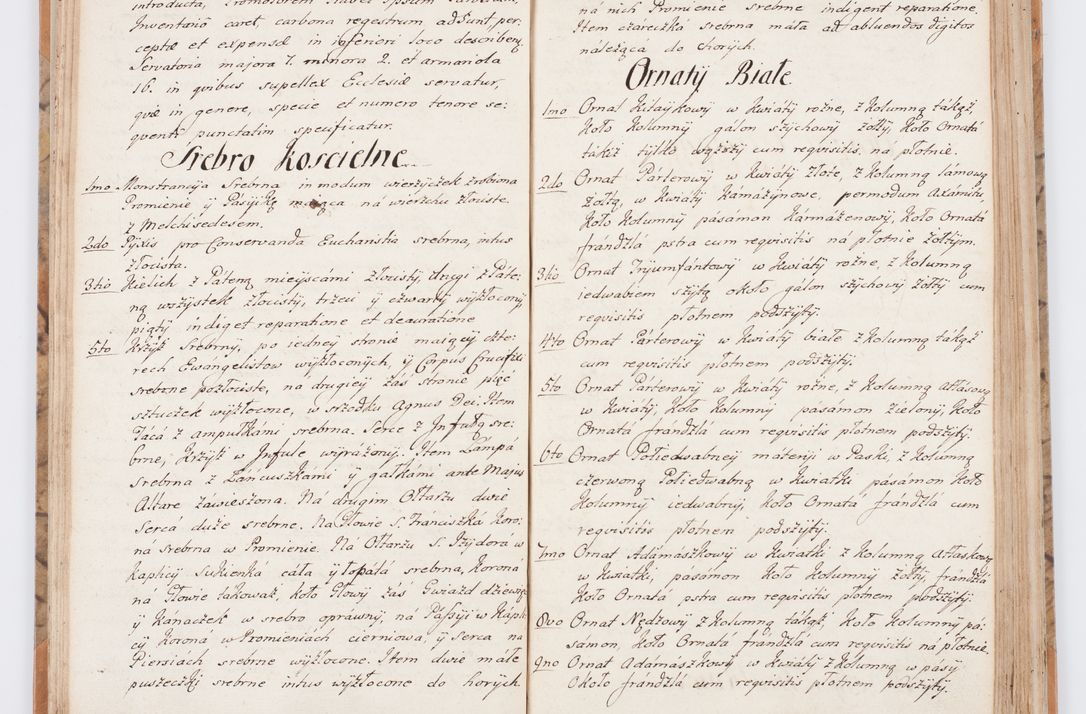 introducta, Promotorem
Inventario caret carbona regestrum adsunt per:
ceptæ et expensæ in inferiori loco describen
Servatoria majora 7. minora 2. et armariola
16. in qvibus supellex Ecclesiæ servatur,
qvæ in genere, specie et numero tenore se:
qventi punctatim specificatur.
Srebro Koscielne
1mo Monstrancyja Srebrna in modum wierzyczek zrobiona
Promienie ÿ Pásyjkę maiąca ná wierzchu złociste
z Melchisedesem.
2do Pyxis pro Conservanda Eucharistia srebrna, intus
złocista.
3tio Kielich z Páteną mieyscámi złocisty, drugi z Páte:
ną wszystek złocisty, trzeci ÿ czwarty wyzłocony
piąty indiget reparatione et deauratione
5to Krzyż Srebrny, po iedney stronie maiący czte:
rech Ewangelistow wyzłoconych, ÿ Corpus Crucifixi
srebrne pozłociste, na drugiey záś stronie pięć
sztuczek wyzłocone, w srzodku Agnus Dei. Item
Tácá z ampułkámi srebrna. Serce z Infułą sre:
brne, Krzyż w Infule wyrażony. Item Lámpá
srebrna z Łáncuszkámi ÿ gałkámi ante Majus
Altare záwieszona. Ná drugim Ołtarzu dwie
Serca duże srebrne. Na Głowie S. Fránciszka Koro:
ná srebrna w Promienie. Ná Ołtarzu S. Izydorá w
Kaplicy Sukienká cáła ÿ łopáta srebrna, Koroná
ná Głowie tákoważ, koło Głowy záś Gwiazd dziewięć
ÿ Kanaczek w srebro oprawny, ná Pássyi w Kápli
cy Koroná w Promieniach cierniowa, ÿ Serca na
Piersiách srebrne wyzłocone. Item dwie máłe
puszeczki srebrne intus wyzłocone do chorych
ná nich Promienie srebrne indigent reparatione,
Item czáreczká srebrna máła ad abluendos digitos
náleżąca do chorych.
Ornaty Białe
1mo Ornat Kitaykowy w Kwiáty rożne, z Kolumną tákąż,
Koło Kolumny gálon szychowy żołty, Koło Ornatá
tákiż tylko węższy cum reqvisitis ná płotnie.
2do Ornat Párterowy w Kwiáty złote, z Kolumną lámową
żołtą, w Kwiáty Kármázynowe, per modum Axámitu,
Koło Kolumny pásámon Kármázenowy, Koło Ornatá
frándzlá pstra cum reqvisitis ná płotnie żołtym.
3tio Ornat Tryumfántowy w Kwiáty rożne, z Kolumną
iedwabiem szytą około gálon szychowy żołty cum
reqvisitis płotnem podszyty.
4to Ornat Párterowy w Kwiáty białe z Kolumną tákąż
cum reqvisitis płotnem podszyty.
5to Ornat Párterowy w Kwiáty rożne, z Kolumną Atłasową
w Kwiáty, Koło Kolumny pásámon zielony, Koło
Ornatá frándzlá cum reqvisitis płotnem podszyty.
6to Ornat Połiedwabney materyi w Paski, z Kolumną
czerwoną Połiedwabną w Kwiatki pasámon Koło
Kolumny iedwabny, Koło Ornatá frándzlá cum
reqvisitis płotnem podszyty.
7mo Ornat Adámaszkowy w Kwiatki z Kolumną Atłasową
w Kwiatki, pasámon Koło Kolumny żołty frándzlá
Koło Ornatá pstra cum reqvisitis płotnem podszyty.
8vo Ornat Nędzowy z Kolumną tákąż, Koło Kolumny pá:
sámon, Koło Ornatá frándzlá cum reqvisitis ná płotnie.
9no Ornat Adámaszkowy w Kwiáty z Kolumną w pásy
Około frándzlá cum reqvisitis płotnem podszyty.